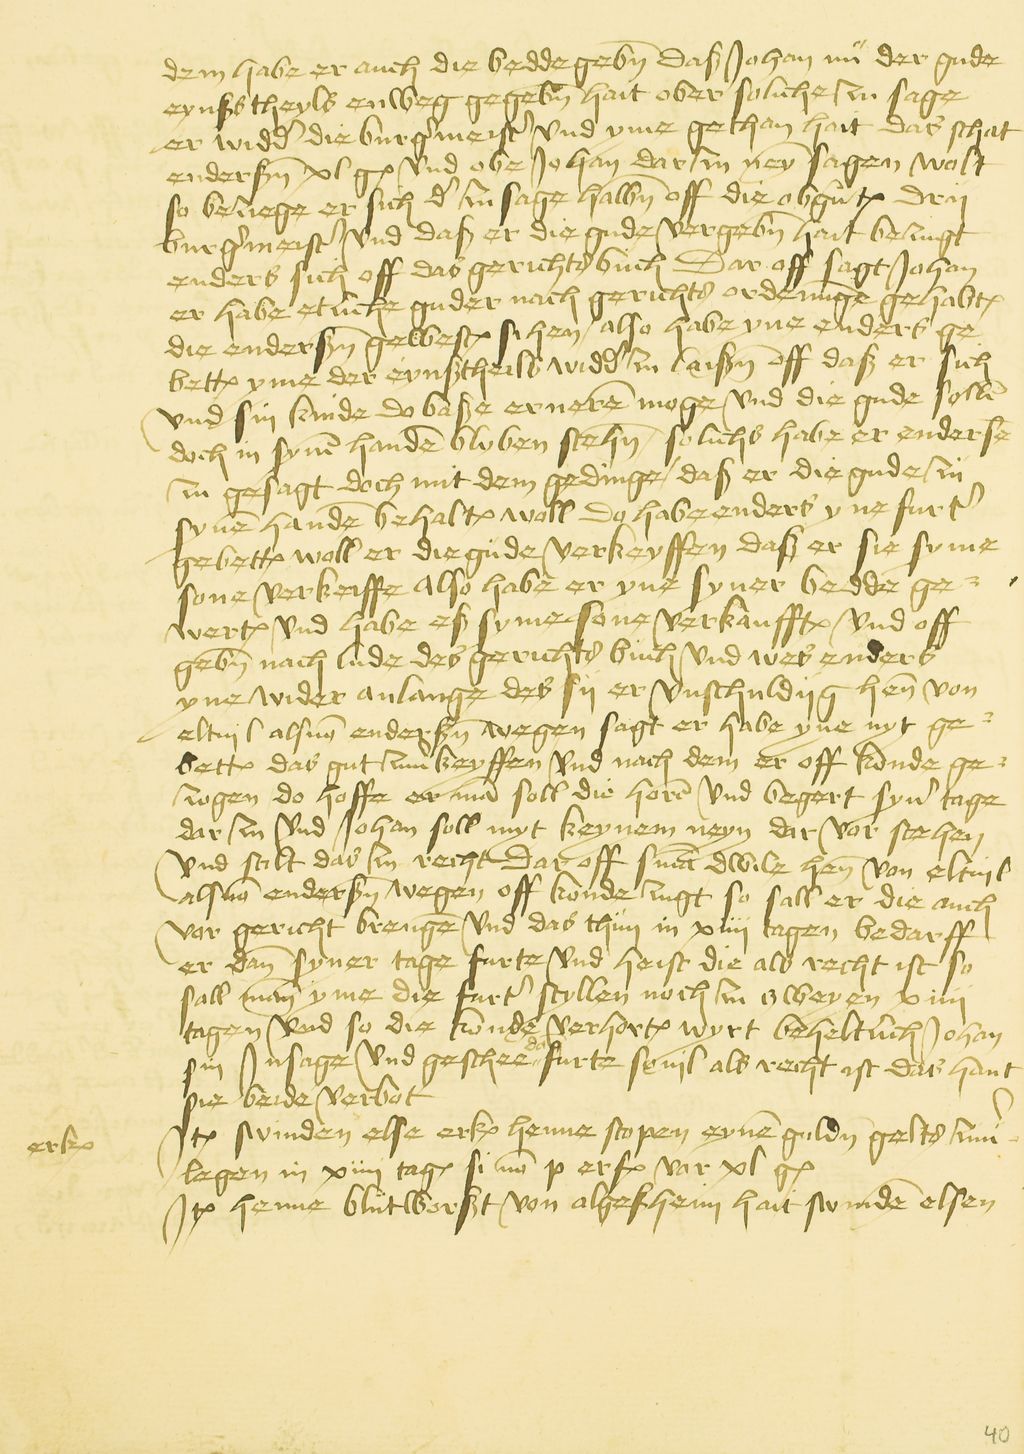 dem habe er auch die bedde gebn̄ daß Johan nů der gude
eynßs theyls enweg gegebn̄ hait ober soliche zu sage
er widd' die burg'meist' vnd yme gethan hait das schat
enderßn̄ xl gx vnd obe Johan dar zu neẏ sagen wolt
so beziege er sich d' zu sage halbn̄ off die obgn̄tx drij
burg'meist' vnd daß er die gude vergebn̄ hait bezugt
enders sich off das gerichts buch Dar off sagt Johan
er habe etliche guder nach gerichts ordenūge gehabtx
die enderßn̄ gewestx sihen / also habe yne enders ge
bettx yme der eynßtheils widd' zu laißn̄ off daß er sich
vnd sin kinde do baße ernerē moge vnd die gude sollē
doch in synē handē blyben stehn̄ / solichs habe er enderßē
zu gesagt doch mit dem gedinge / daß er die gude zů
synē handē behaltx woll Do habe enders yne furt'
gebettx woll er die gude verkeyffen daß er sie syme
sone verkeiffe Also habe er yne syner bedde ge =
wertx vnd habe eß syme sone verkaufftx vnd off
gebn̄ nach lude des gerichts buch vnd wes enders
yne wider anlange des sij er vnschuldijg hen̄ von
eltuil alsuō enderßn̄ wegen sagt er habe yne nyt ge =
bettx das gut zuu'keyffen vnd nach dem er off konde ge =
zogen do hoffe er mā soll die horē vnd begert syn' tage
dar zu vnd Johan soll myt keynem neyn dar vor stehen
vnd stilt das zu recht Dar off sniā dwile hen̄ von eltuil
alsuō enderßn̄ wegen off konde zugt so sall er die auch
vor gericht brengē vnd das thun in xiiij tagen bedarff
er dan̄ syner tage furte vnd heist die als recht ist so
sall man̄ yme die furt' styllen noch zu zweyen xiiij
tagen vnd so die kunde verhortx wyrt beheltlich Johan
sin Insage vnd geschee da furte souil als recht ist das haīt
sie beide verbot
Itx swinden else erkx henne stopen eynē guldn̄ gelts zuu' -
legen in xiiij tagx si nō p erfx vor xl gx
Itx henne blutworßt von algeßheim hait swindē elsen
erkx
40